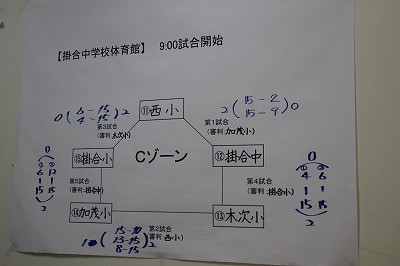 【掛合中学校体育館】 9:00試合開始
0(6-15 4-15)2
⑪西小
2(15-2 15-9)0
第3試合
(審判:木次小)
第1試合
(審判:加茂小)
⑮掛合小
Cゾーン
⑫掛合中
第5試合
(審判:掛合中)
第4試合
(審判:掛合小)
⑭加茂小
⑬木次小
第2試合
(審判:西小)
15-10
13-15
8-15
2
0
6
1
15
2
0
4
1
15
6
1
15
2